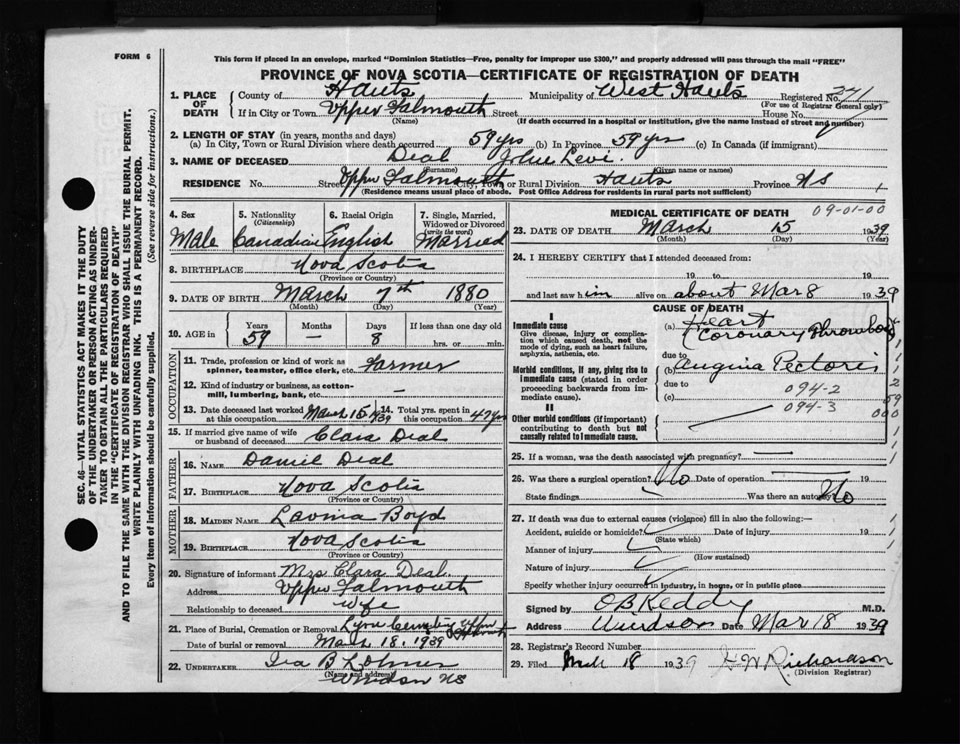 FORM 6
This form if placed in an envelope, marked "Dominion Statistics—Free, penalty for improper use $300," and properly addressed will pass through the mail "FREE"
PROVINCE OF NOVA SCOTIA—CERTIFICATE OF REGISTRATION OF DEATH
1. PLACE OF DEATH
County of Hants Municipality of West Hants Registered No. 371
(For use of Registrar General only)
If in City or Town Upper Falmouth Street House No.
(Name) (If death occurred in a hospital or institution, give the name instead of street and number)
2. LENGTH OF STAY (in years, months and days)
(a) In City, Town or Rural Division where death occurred 59 yrs (b) In Province 59 yrs (c) In Canada (if immigrant)
3. NAME OF DECEASED Deal John Levi
(Surname) (Given name or names)
RESIDENCE No. Street Upper Falmouth City, Town or Rural Division Hants Province NS
(Residence means usual place of abode. Post Office Address for residents in rural parts not sufficient)
4. Sex
Male
5. Nationality
(Citizenship)
Canadian
6. Racial Origin
English
7. Single, Married, Widowed or Divorced
(write the word)
Married
8. BIRTHPLACE Nova Scotia
(Province or Country)
9. DATE OF BIRTH March 7th 1880
(Month) (Day) (Year)
10. AGE in Years Months Days If less than one day old
59 — 8 hrs. or min.
OCCUPATION
11. Trade, profession or kind of work as spinner, teamster, office clerk, etc. Farmer
12. Kind of industry or business, as cotton-mill, lumbering, bank, etc. —
13. Date deceased last worked at this occupation March 15 1939 14. Total yrs. spent in this occupation 47 yrs
15. If married give name of wife or husband of deceased Clara Deal
FATHER
16. NAME Daniel Deal
17. BIRTHPLACE Nova Scotia
(Province or Country)
MOTHER
18. MAIDEN NAME Lavinia Boyd
19. BIRTHPLACE Nova Scotia
(Province or Country)
20. Signature of informant Mrs Clara Deal
Address Upper Falmouth
Relationship to deceased wife
21. Place of Burial, Cremation or Removal Upper Falmouth
Date of burial or removal March 18. 1939
22. UNDERTAKER Ira B
(Name and address) Windsor NS
MEDICAL CERTIFICATE OF DEATH
09-01-00
23. DATE OF DEATH March 15 1939
(Month) (Day) (Year)
24. I HEREBY CERTIFY that I attended deceased from:
19 to 19
and last saw him alive on about Mar 8 1939
CAUSE OF DEATH
I
Immediate cause
Give disease, injury or complication which caused death, not the mode of dying, such as heart failure, asphyxia, asthenia, etc.
(a) Heart Coronary Thrombosis
due to
Morbid conditions, if any, giving rise to immediate cause (stated in order proceeding backwards from immediate cause).
(b) Angina Pectoris
due to 094-2
(c) 094-3
II
Other morbid conditions (if important) contributing to death but not causally related to immediate cause.
25. If a woman, was the death associated with pregnancy? —
26. Was there a surgical operation? No Date of operation 19
State findings Was there an autopsy? No
27. If death was due to external causes (violence) fill in also the following:—
Accident, suicide or homicide? Date of injury 19
(State which)
Manner of injury
(How sustained)
Nature of injury
Specify whether injury occurred in industry, in home, or in public place
Signed by O B Keddy M.D.
Address Windsor Date Mar 18 1939
28. Registrar's Record Number
29. Filed March 18 1939 Richardson
(Division Registrar)
SEC. 46—VITAL STATISTICS ACT MAKES IT THE DUTY OF THE UNDERTAKER OR PERSON ACTING AS UNDERTAKER TO OBTAIN ALL THE PARTICULARS REQUIRED IN THE "CERTIFICATE OF REGISTRATION OF DEATH" AND TO FILE THE SAME WITH THE DIVISION REGISTRAR WHO SHALL ISSUE THE BURIAL PERMIT.
WRITE PLAINLY WITH UNFADING INK. THIS IS A PERMANENT RECORD.
Every item of information should be carefully supplied. (See reverse side for instructions.)